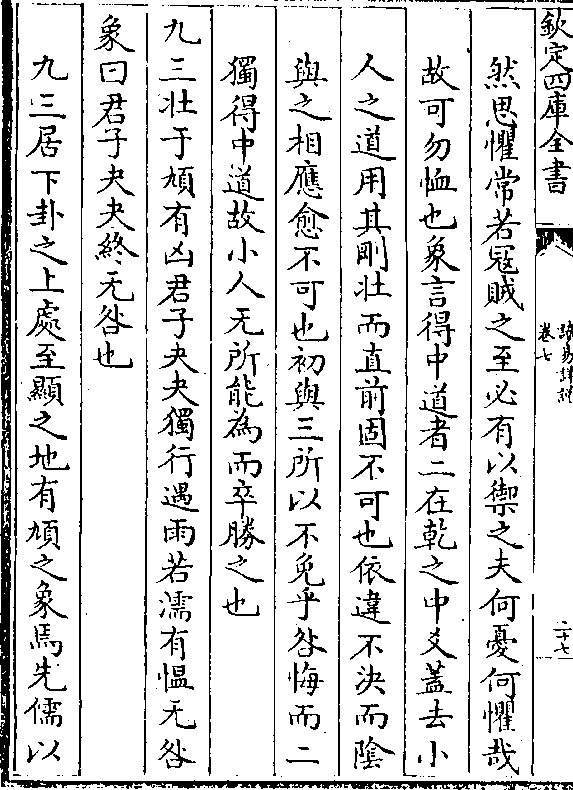 欽定四庫全書
讀易詳說
卷七
二十七
然思懼常若冦賊之至必有以禦之夫何憂何懼哉
故可勿恤也象言得中道者二在乾之中爻蓋去小
人之道用其剛壯而直前固不可也依違不決而陰
與之相應愈不可也初與三所以不免乎咎悔而二
獨得中道故小人无所能為而卒勝之也
九三壯于頄有凶君子夬夬獨行遇雨若濡有愠无咎
象曰君子夬夬終无咎也
九三居下卦之上處至顯之地有頄之象焉先儒以